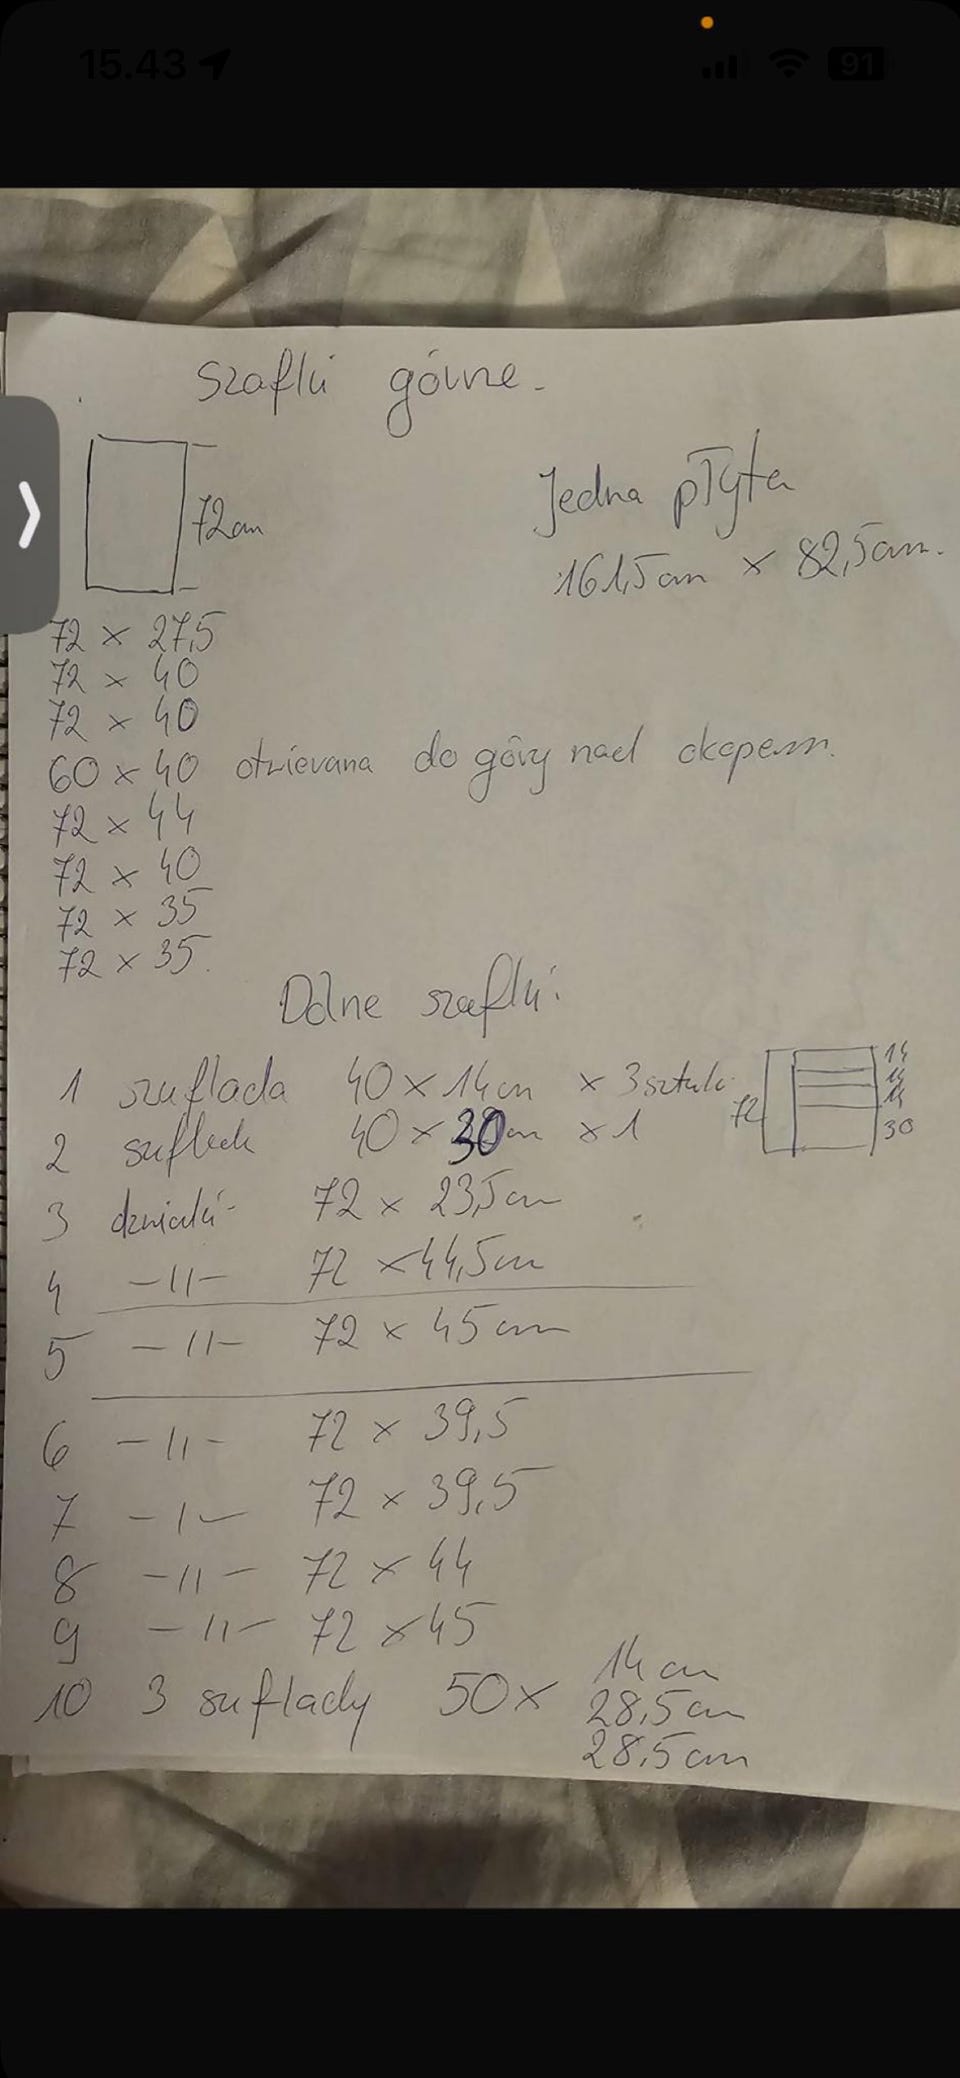 15.43
91
Szafki górne.
72cm
Jedna płyta
161,5cm x 82,5cm.
72 x 27,5
72 x 40
72 x 40
60 x 40 otwierana do góry nad okapem.
72 x 44
72 x 40
72 x 35
72 x 35.
Dolne szafki:
1 szuflada 40 x 14cm x 3 sztuki
2 szuflada 40 x 30cm x 1
72
14
14
14
30
3 drzwiczki 72 x 23,5cm
4 -11- 72 x 44,5cm
5 -11- 72 x 45cm
6 -11- 72 x 39,5
7 -1- 72 x 39,5
8 -11- 72 x 44
9 -11- 72 x 45
10 3 suflady 50x 14cm
28,5cm
28,5cm